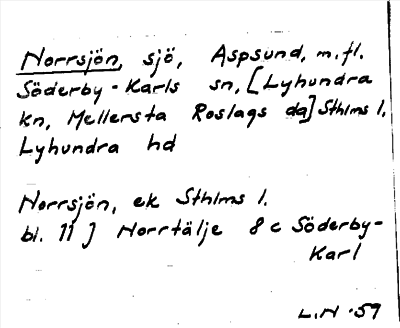 Norrsjön, sjö, Aspsund, m.fl.
Söderby-Karls sn, [Lyhundra
kn, Mellersta Roslags da] Sthlms l.
Lyhundra hd
Norrsjön, ek Sthlms l.
bl. 11 J Norrtälje 8c Söderby-
Karl
L.N. 59